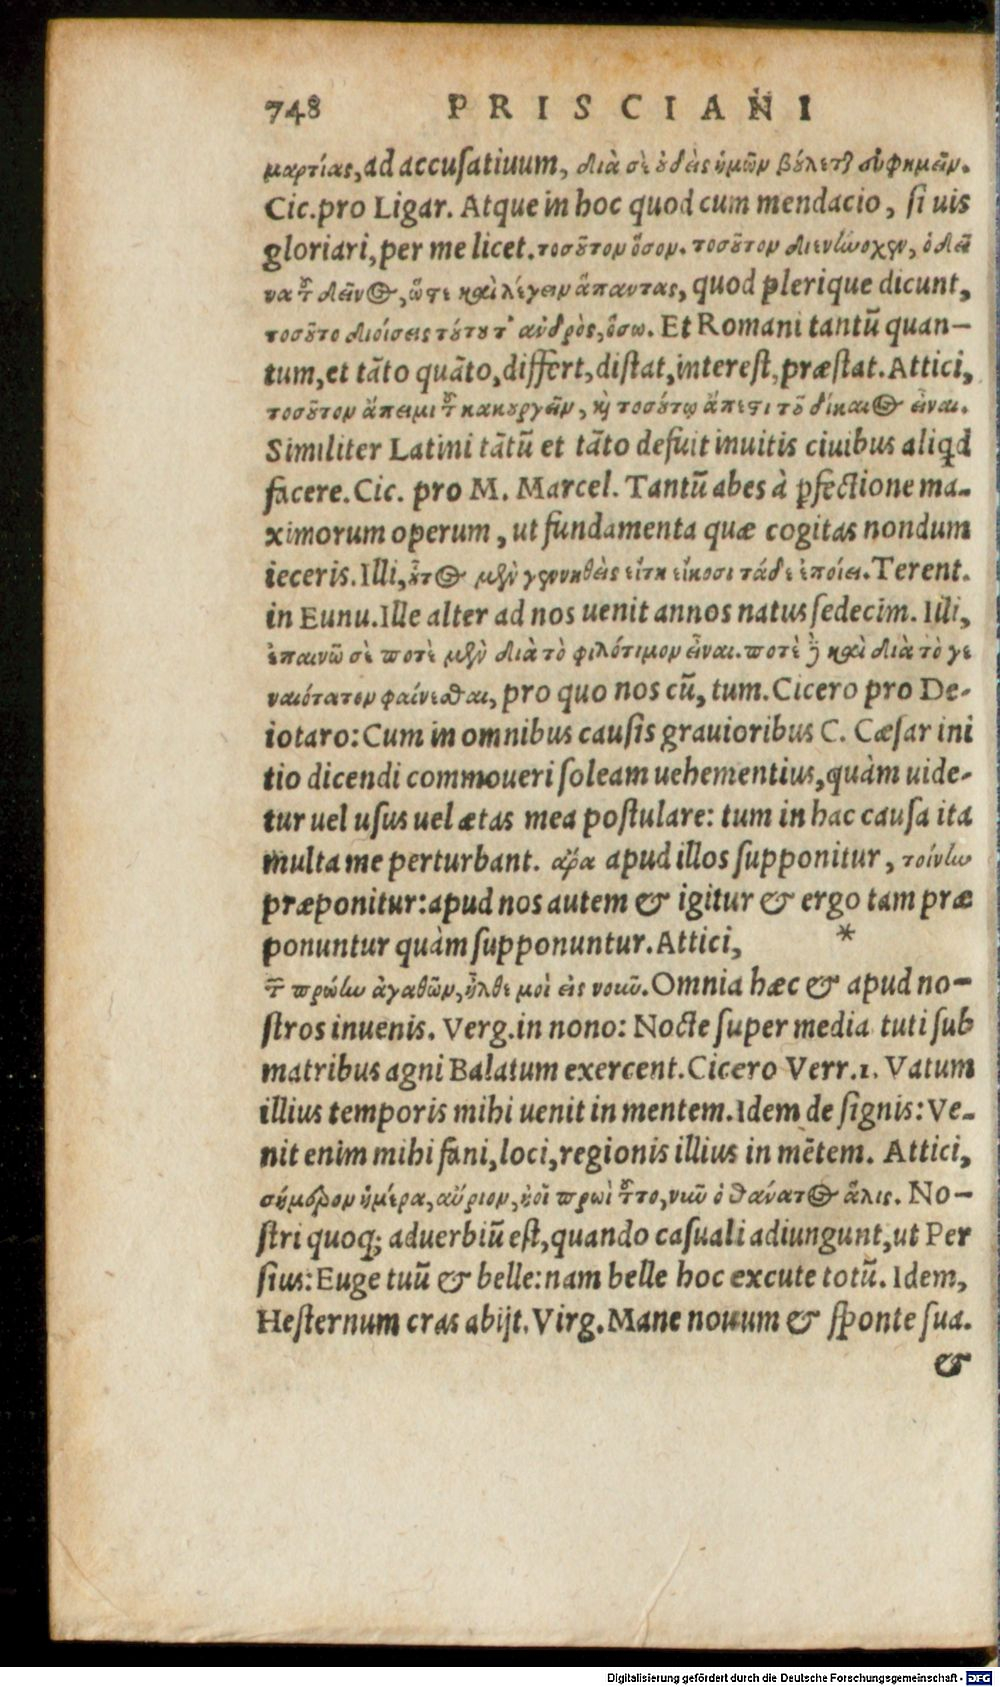 748 PRISCIANI
μαρτίας, ad accusatiuum, διὰ σὲ ὀδεὶς ἡμῶν βούλεται συφημεῖν.
Cic. pro Ligar. Atque in hoc quod cum mendacio, si uis
gloriari, per me licet. τοσοῦτον ὅσον. τοσοῦτον διενήνοχεν, ὁ δεῖ
να τοῦ δεῖνος, ὥστε καὶ λέγειν ἅπαντας, quod plerique dicunt,
τοσοῦτο διοίσεις τούτου τ' ἀνδρὸς, ὅσω. Et Romani tantū quan-
tum, et tāto quāto, differt, distat, interest, præstat. Attici,
τοσοῦτον ἄπειμι τοῦ κακουργεῖν, καὶ τοσούτῳ ἄπεστι τοῦ δίκαιος εἶναι.
Similiter Latini tātū et tāto defuit inuitis ciuibus aliqd
facere. Cic. pro M. Marcel. Tantū abes à pfectione ma-
ximorum operum, ut fundamenta quæ cogitas nondum
ieceris. Illi, οὗτος μὲν γεννηθεὶς εἴτη εἴκοσι τάδε ἐποίει. Terent.
in Eunu. Ille alter ad nos uenit annos natus sedecim. Illi,
ἐπαινῶ σὲ ποτὲ μὲν διὰ τὸ φιλότιμον εἶναι. ποτὲ δὲ καὶ διὰ τὸ γε
ναιότατον φαίνεσθαι, pro quo nos cū, tum. Cicero pro De-
iotaro: Cum in omnibus causis grauioribus C. Cæsar ini
tio dicendi commoueri soleam uehementius, quàm uide-
tur uel usus uel ætas mea postulare: tum in hac causa ita
multa me perturbant. ἄρα apud illos supponitur, τοίνυν
præponitur: apud nos autem & igitur & ergo tam præ
ponuntur quàm supponuntur. Attici, *
τοῦ πρώτου ἀγαθῶν, ἦλθε μοὶ εἰς νοῦν. Omnia hæc & apud no-
stros inuenis. Verg. in nono: Nocte super media tuti sub
matribus agni Balatum exercent. Cicero Verr. 1. Vatum
illius temporis mihi uenit in mentem. Idem de signis: Ve-
nit enim mihi fani, loci, regionis illius in mētem. Attici,
σήμερον ἡμέρα, αὔριον, πρωὶ νῦν ὁ θάνατος ἅλις. No-
stri quoq; aduerbiū est, quando casuali adiungunt, ut Per
sius: Euge tuū & belle: nam belle hoc excute totū. Idem,
Hesternum cras abijt. Virg. Mane nouum & sponte sua.
&
Digitalisierung gefördert durch die Deutsche Forschungsgemeinschaft - DFG